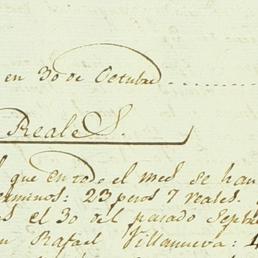 en 30 de Octubre
Reales.
que en todo el mes se han
terminos: 23 pesos 7 reales.
el 30 del pasado Septbre
Rafael Villanueva: